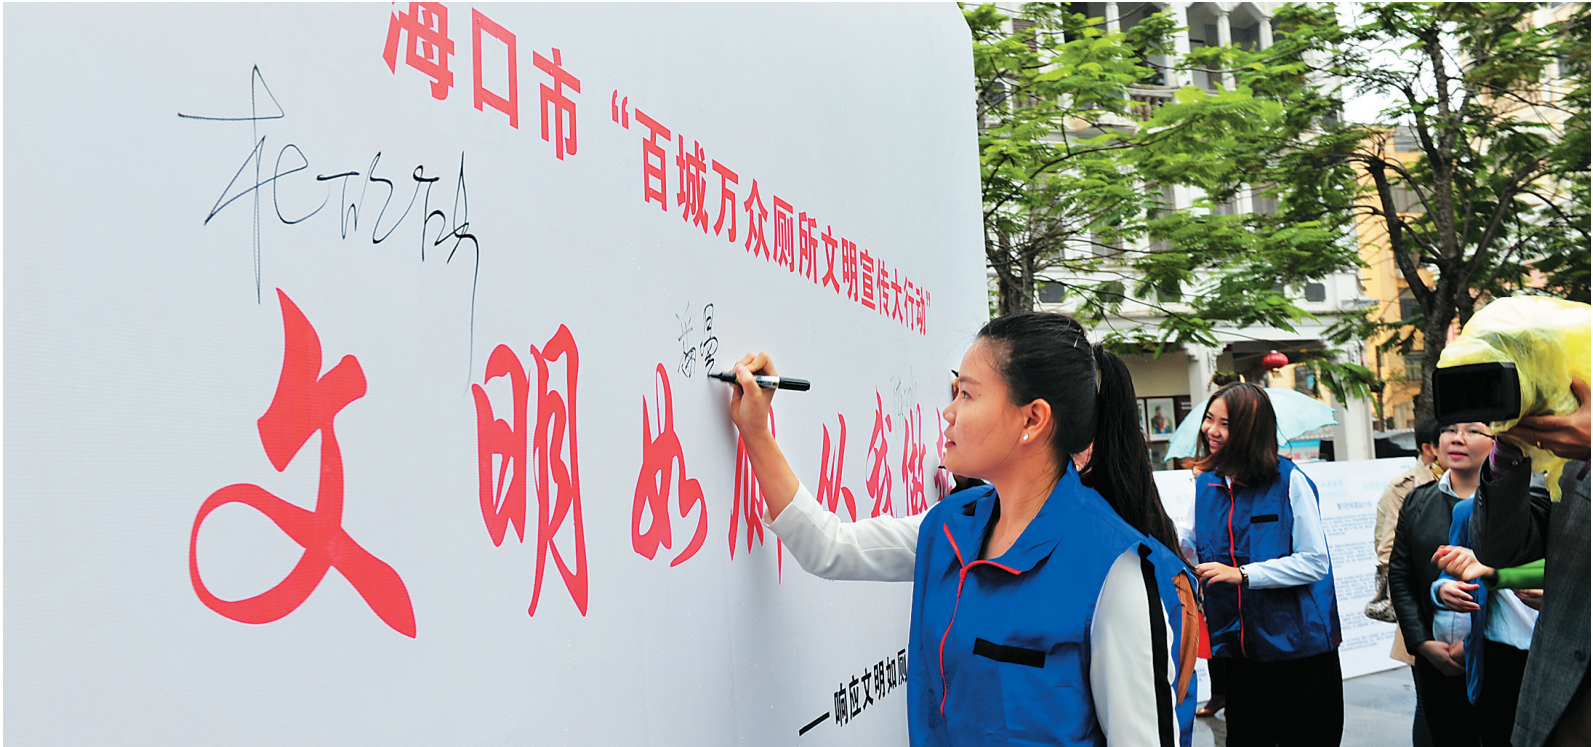 海口市“百城万众厕所文明宣传大行动”
文明如厕 从我做
——响应文明如厕